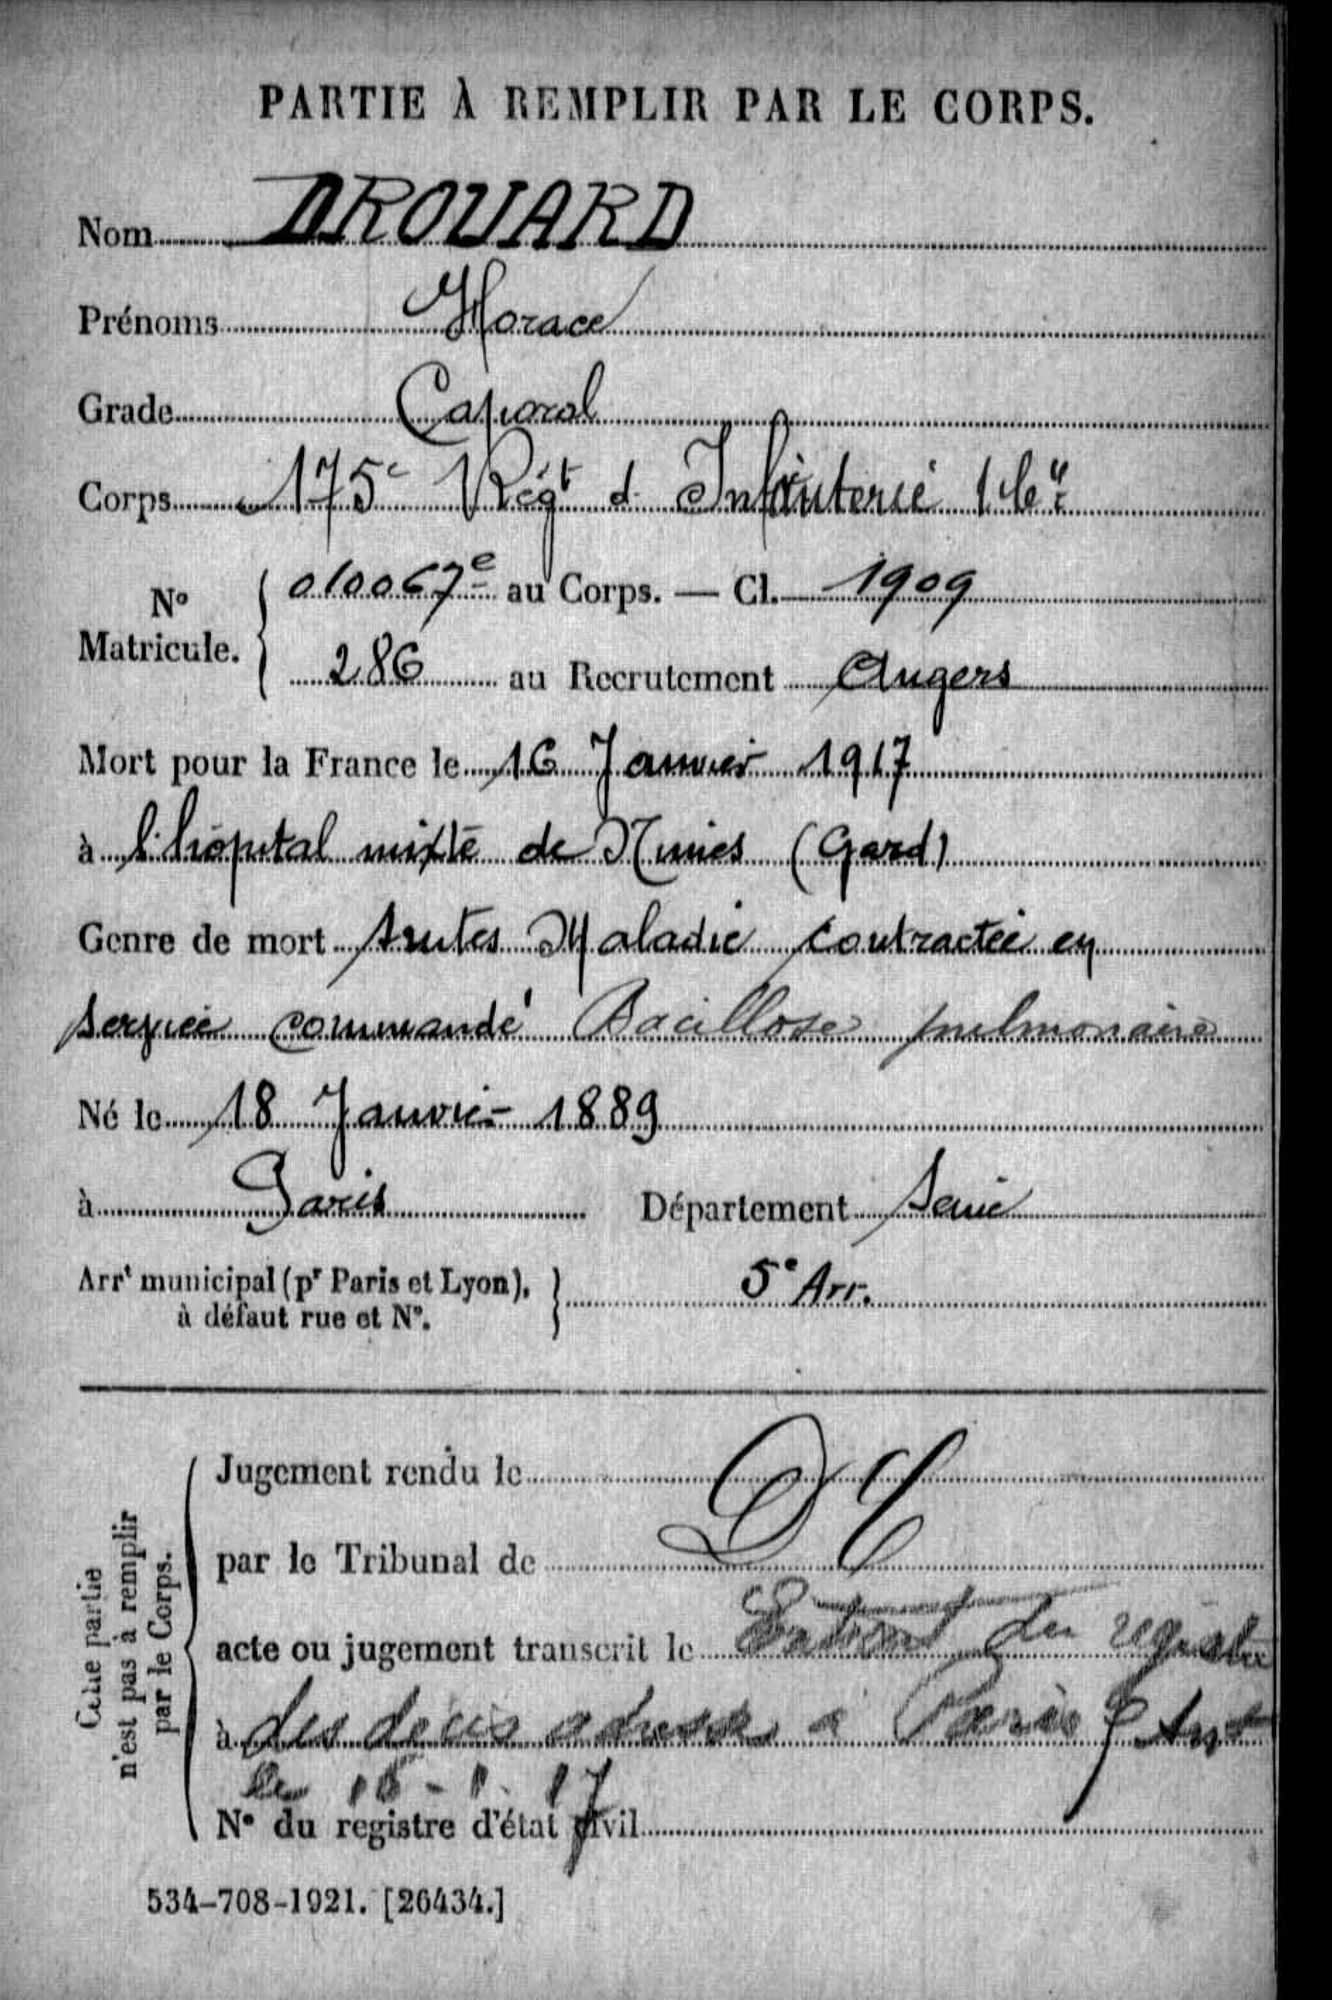 PARTIE À REMPLIR PAR LE CORPS.
Nom DROUARD
Prénoms Horace
Grade Caporal
Corps 175e Régt d'Infanterie 1 Cie
N° Matricule. 010067e au Corps. — Cl. 1909
286 au Recrutement Angers
Mort pour la France le 16 Janvier 1917
à l'hôpital mixte de Nimes (Gard)
Genre de mort suites Maladie contractée en
service commandé Bacillose pulmonaire
Né le 18 Janvier 1889
à Paris Département Seine
Arrt municipal (pr Paris et Lyon), à défaut rue et N°. 5e Arr.
Cette partie n'est pas à remplir par le Corps.
Jugement rendu le
par le Tribunal de
acte ou jugement transcrit le Extrait du registre
à des décès adressé à Paris
le 16-1-17
N° du registre d'état civil
534-708-1921. [26434.]